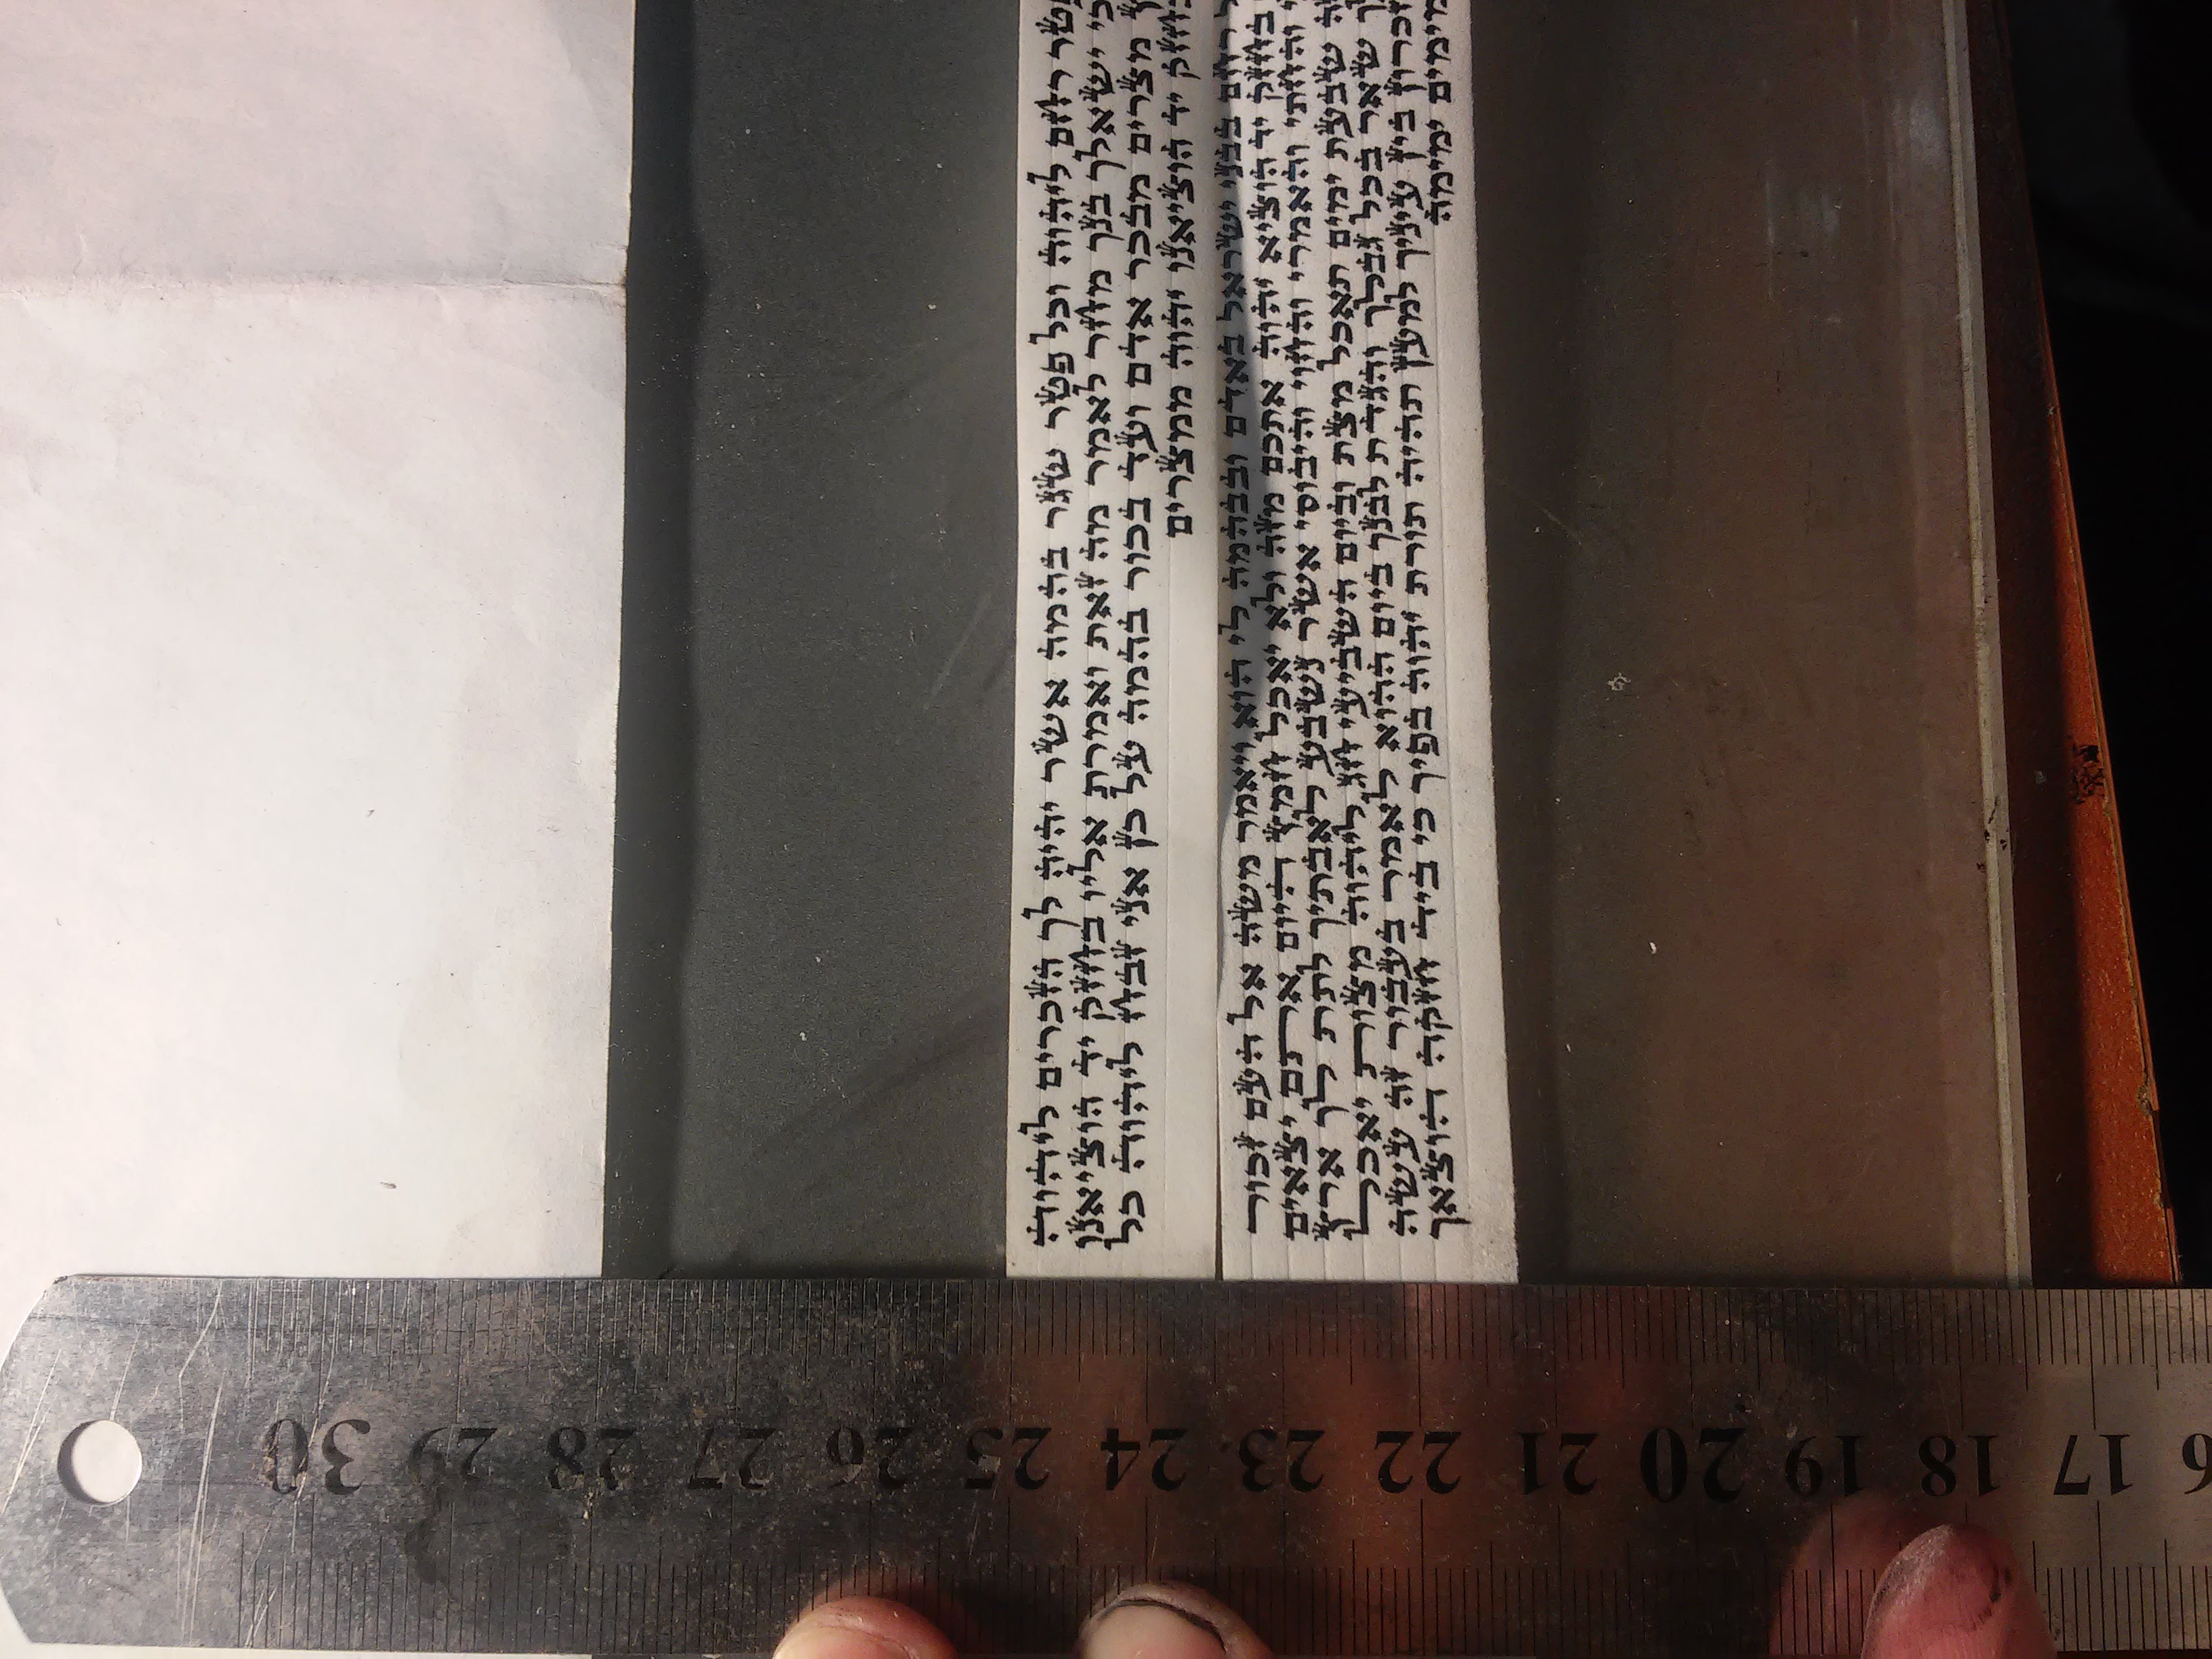 30
29
28
27
26
25
24
23
22
21
20
19
18
17
רחם ליהוה וכל פטר שגר בהמה אשר יהיה לך הזכרים ליהוה
כי ישאלך בנך מחר לאמר מה זאת ואמרת אליו בחזק יד הוציאנו
מצרים מבכר אדם ועד בכור בהמה על כן אני זבח ליהוה כל
יד הוציאנו יהוה ממצרים
רחם בבני ישראל באדם ובבהמה לי הוא ויאמר משה אל העם זכור
בחזק יד הוציא יהוה אתכם מזה ולא יאכל חמץ היום אתם יצאים
והחתי והאמרי והחוי והיבוסי אשר נשבע לאבתיך לתת לך ארץ
שבעת ימים תאכל מצת וביום השביעי חג ליהוה מצות יאכל
שאר בכל גבלך והגדת לבנך ביום ההוא לאמר בעבור זה עשה
בין עיניך למען תהיה תורת יהוה בפיך כי ביד חזקה הוצאך
ימימה